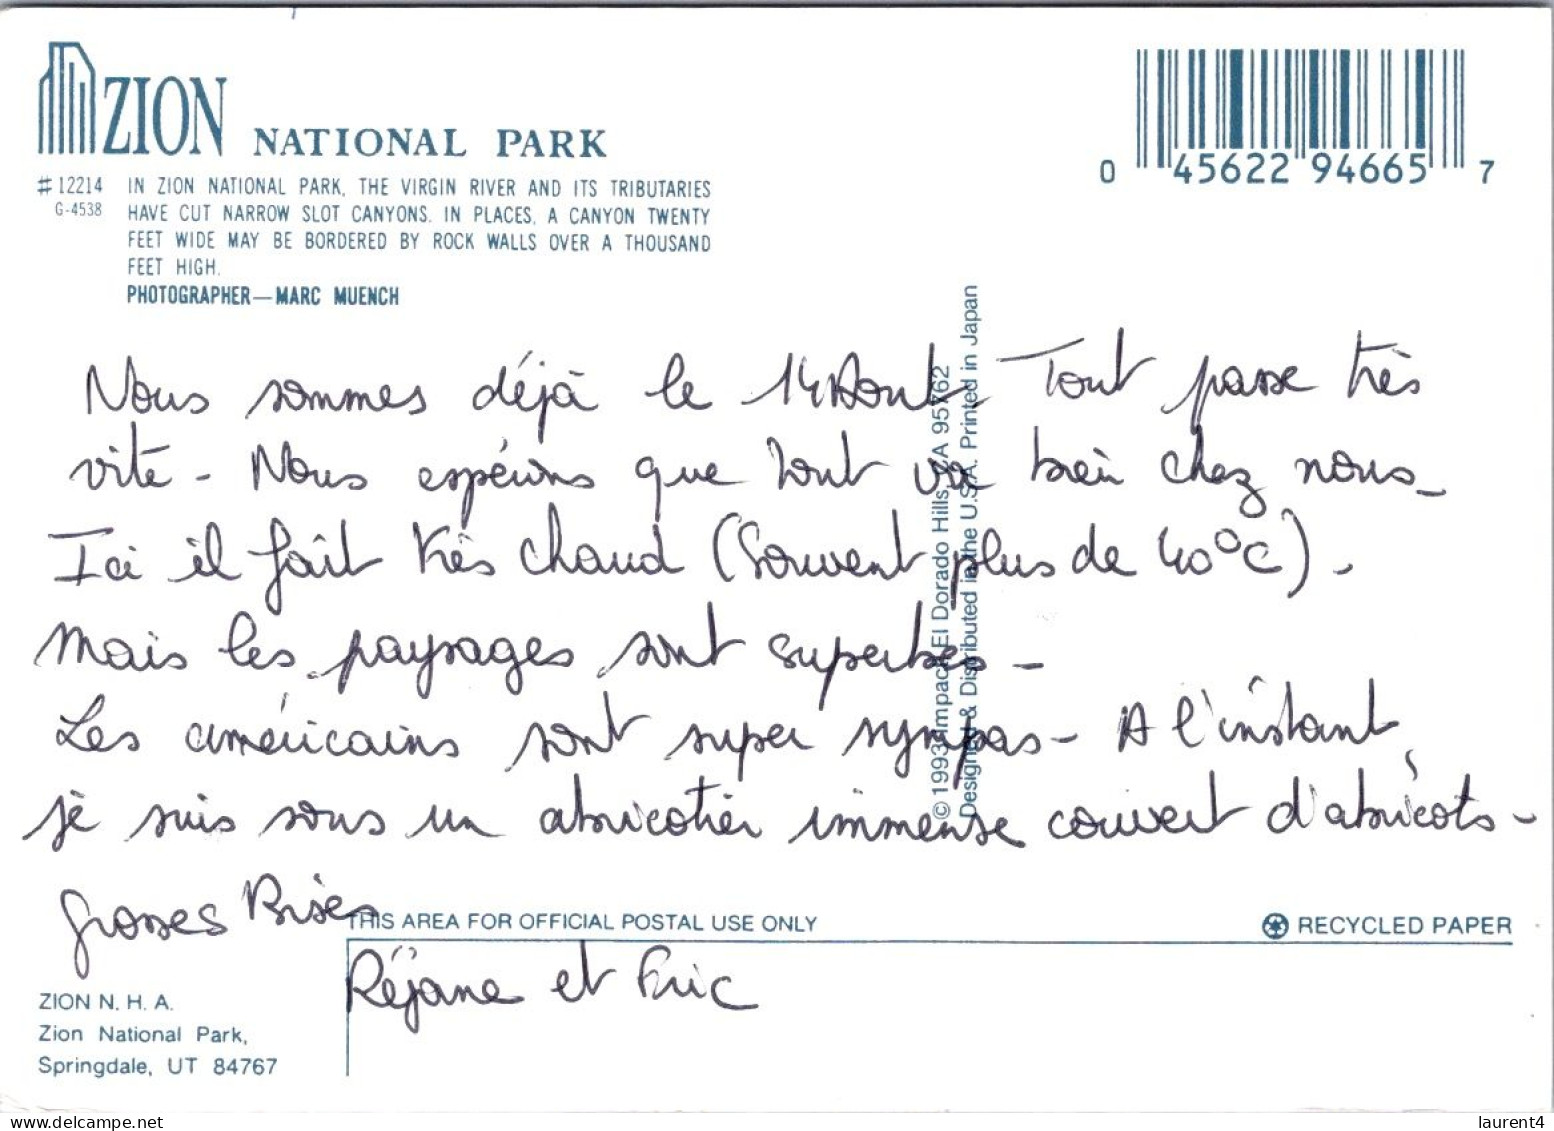 ZION NATIONAL PARK
#12214
G-4538
IN ZION NATIONAL PARK, THE VIRGIN RIVER AND ITS TRIBUTARIES
HAVE CUT NARROW SLOT CANYONS. IN PLACES, A CANYON TWENTY
FEET WIDE MAY BE BORDERED BY ROCK WALLS OVER A THOUSAND
FEET HIGH.
PHOTOGRAPHER—MARC MUENCH
0 45622 94665 7
Nous sommes déjà le 14 Aout. Tout passe très
vite - Nous espérons que tout va bien chez nous -
Ici il fait très chaud (Souvent plus de 40°C).
Mais les paysages sont superbes -
Les américains sont super sympas - A l'instant,
je suis sous un abricotier immense couvert d'abricots -
grosses Bises
Réjane et Eric
© 1993 Impact, El Dorado Hills, CA 95762
Designed & Distributed in the U.S.A. Printed in Japan
THIS AREA FOR OFFICIAL POSTAL USE ONLY
RECYCLED PAPER
ZION N. H. A.
Zion National Park,
Springdale, UT 84767
www.delcampe.net
laurent4